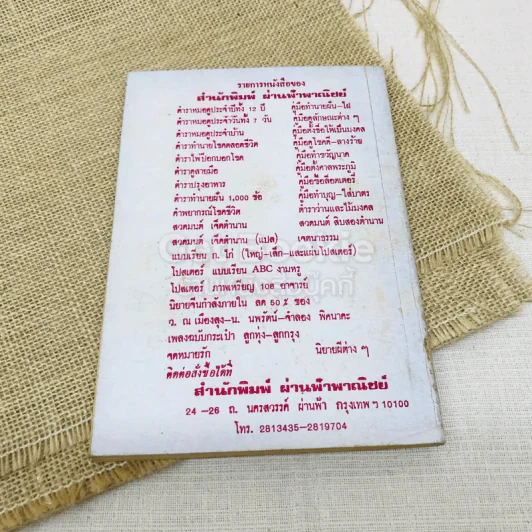 รายการหนังสือของ
สำนักพิมพ์ ผ่านฟ้าพาณิชย์
ตำราหมอดูประจำปีทั้ง 12 ปี คู่มือทำนายฝัน-ไฝ
ตำราหมอดูประจำวันทั้ง 7 วัน คู่มือดูลักษณะต่าง ๆ
ตำราหมอดูประจำบ้าน คู่มือตั้งชื่อให้เป็นมงคล
ตำราทำนายโชคตลอดชีวิต คู่มือดูโชคดี-ลางร้าย
ตำราไพ่ป๊อกบอกโชค คู่มือทำขวัญนาค
ตำราดูลายมือ คู่มือตั้งศาลพระภูมิ
ตำราปรุงอาหาร คู่มือซื้อล็อตเตอรี่
ตำราทำนายฝัน 1,000 ข้อ คู่มือทำบุญ-ใส่บาตร
ตำพยากรณ์โชคชีวิต ตำราว่านและไม้มงคล
สวดมนต์ เจ็ดตำนาน สวดมนต์ สิบสองตำนาน
สวดมนต์ เจ็ดตำนาน (แปล) เจตนาธรรม
แบบเรียน ก. ไก่ (ใหญ่-เล็ก-และแผ่นโปสเตอร์)
โปสเตอร์ แบบเรียน ABC งามหรู
โปสเตอร์ ภาพเหรียญ 108 อาจารย์
นิยายจีนกำลังภายใน ลด 50 % ของ
ว. ณ เมืองลุง-น. นพรัตน์-จำลอง พิศนาคะ
เพลงฉบับกระเป๋า ลูกทุ่ง-ลูกกรุง
จดหมายรัก นิยายผีต่าง ๆ
ติดต่อสั่งซื้อได้ที่
สำนักพิมพ์ ผ่านฟ้าพาณิชย์
24 -26 ถ. นครสวรรค์ ผ่านฟ้า กรุงเทพ ฯ 10100
โทร. 2813435-2819704